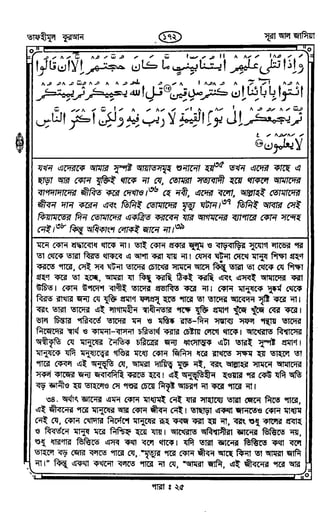 তাফহীমুল কুরআন
১৭২
সূরা আল জাসিয়া
وَإِذَا تُتْلَىٰ عَلَيْهِمْ اٰيٰتُنَا بَيِّنٰتٍ مَّا كَانَ حُجَّتَهُمْ اِلَّآ اَنْ قَالُوا
ائْتُوْا بِاٰبَآئِنَآ اِنْ كُنْتُمْ صٰدِقِيْنَ ۞ قُلِ اللّٰهُ يُحْيِيْكُمْ ثُمَّ يُمِيْتُكُمْ
ثُمَّ يَجْمَعُكُمْ اِلٰى يَوْمِ الْقِيٰمَةِ لَا رَيْبَ فِيْهِ وَلٰكِنَّ اَكْثَرَ النَّاسِ
لَا يَعْلَمُوْنَ ۞
যখন এদেরকে আমার সুস্পষ্ট আয়াতসমূহ শুনানো হয়৩৫ তখন এদের কাছে এ
ছাড়া আর কোন যুক্তিই থাকে না যে, তোমরা সত্যবাদী হয়ে থাকলে আমাদের
বাপদাদাদের জীবিত করে দেখাও।৩৬ হে নবী, এদের বলো, আল্লাহই তোমাদের
জীবন দান করেন এবং তিনিই তোমাদের মৃত্যু ঘটান।৩৭ তিনিই আবার সেই
কিয়ামতের দিন তোমাদের একত্রিত করবেন যার আগমনের ব্যাপারে কোন সন্দেহ
নেই।৩৮ কিন্তু অধিকাংশ লোকই জানে না।৩৯
মনে কোন শ্রদ্ধাবোধ থাকে না। তাই কোন প্রকার জুলুম ও বাড়াবাড়ির সুযোগ লাভের পর
তা থেকে তারা বিরত থাকবে এ আশা করা যায় না। যেসব ঘটনা দেখে মানুষ শিক্ষা গ্রহণ
করতে পারে, সেই সব ঘটনা তাদের চোখের সামনে আসে কিন্তু তারা তা থেকে যে শিক্ষা
গ্রহণ করে তা হচ্ছে, আমরা যা কিছু করছি ঠিকই করছি এবং এসবই আমাদের করা
উচিত। কোন উপদেশ বাণীই তাদের প্রভাবিত করে না। কোন মানুষকে দুষ্কর্ম থেকে
বিরত রাখার জন্য যে যুক্তি প্রমাণ ফলপ্রসূ হতে পারে তা তাদের আবেদন সৃষ্টি করে না।
বরং তারা তাদের এই লাগামহীন স্বাধীনতার পক্ষে যুক্তি প্রমাণ খুঁজে খুঁজে বের করে।
ভাল চিন্তার পরিবর্তে তাদের মন ও মস্তিষ্ক রাত-দিন সম্ভাব্য সকল পন্থায় তাদের
নিজেদের স্বার্থ ও কামনা-বাসনা চরিতার্থ করার চেষ্টায় লেগে থাকে। আখেরাত বিশ্বাসের
অস্বীকৃতি যে মানুষের নৈতিক চরিত্রের জন্য ধ্বংসাত্মক এটা তারই সুস্পষ্ট প্রমাণ।
মানুষকে যদি মনুষ্যত্বের গণ্ডির মধ্যে কোন জিনিস ধরে রাখতে সক্ষম হয় তাহলে তা
পারে কেবল এই অনুভূতি যে, আমরা দায়িত্ব মুক্ত নই, বরং আল্লাহর সামনে আমাদের
সকল কাজের জন্য জবাবদিহি করতে হবে। এই অনুভূতিহীন হওয়ার পর কেউ যদি অতি
বড় জ্ঞানীও হয় তাহলেও সে পশুর চেয়ে নিকৃষ্ট আচরণ না করে পারে না।
৩৪. অর্থাৎ জ্ঞানের এমন কোন মাধ্যমই নেই যার সাহায্যে তারা জেনে নিতে পারে,
এই জীবনের পরে মানুষের আর কোন জীবন নেই। তাছাড়া একথা জানতেও কোন মাধ্যম
নেই যে, কোন খোদার নির্দেশে মানুষের রূহ কবজ করা হয় না, বরং শুধু কালের প্রবাহ
ও বিবর্তনে মানুষ মরে নিশ্চিহ্ন হয়ে যায়। আখেরাত অবিশ্বাসীরা জ্ঞানের ভিত্তিতে নয়,
শুধু ধারণার ভিত্তিতে এসব কথা বলে থাকে। যদি তারা জ্ঞানের ভিত্তিতে কথা বলে
তাহলে বড় জোর বলতে পারে যে, "মৃত্যুর পরে কোন জীবন আছে কিনা তা আমরা জানি
না।" কিন্তু একথা কখনো বলতে পারে না যে, "আমরা জানি, এই জীবনের পরে আর
পারা : ২৫